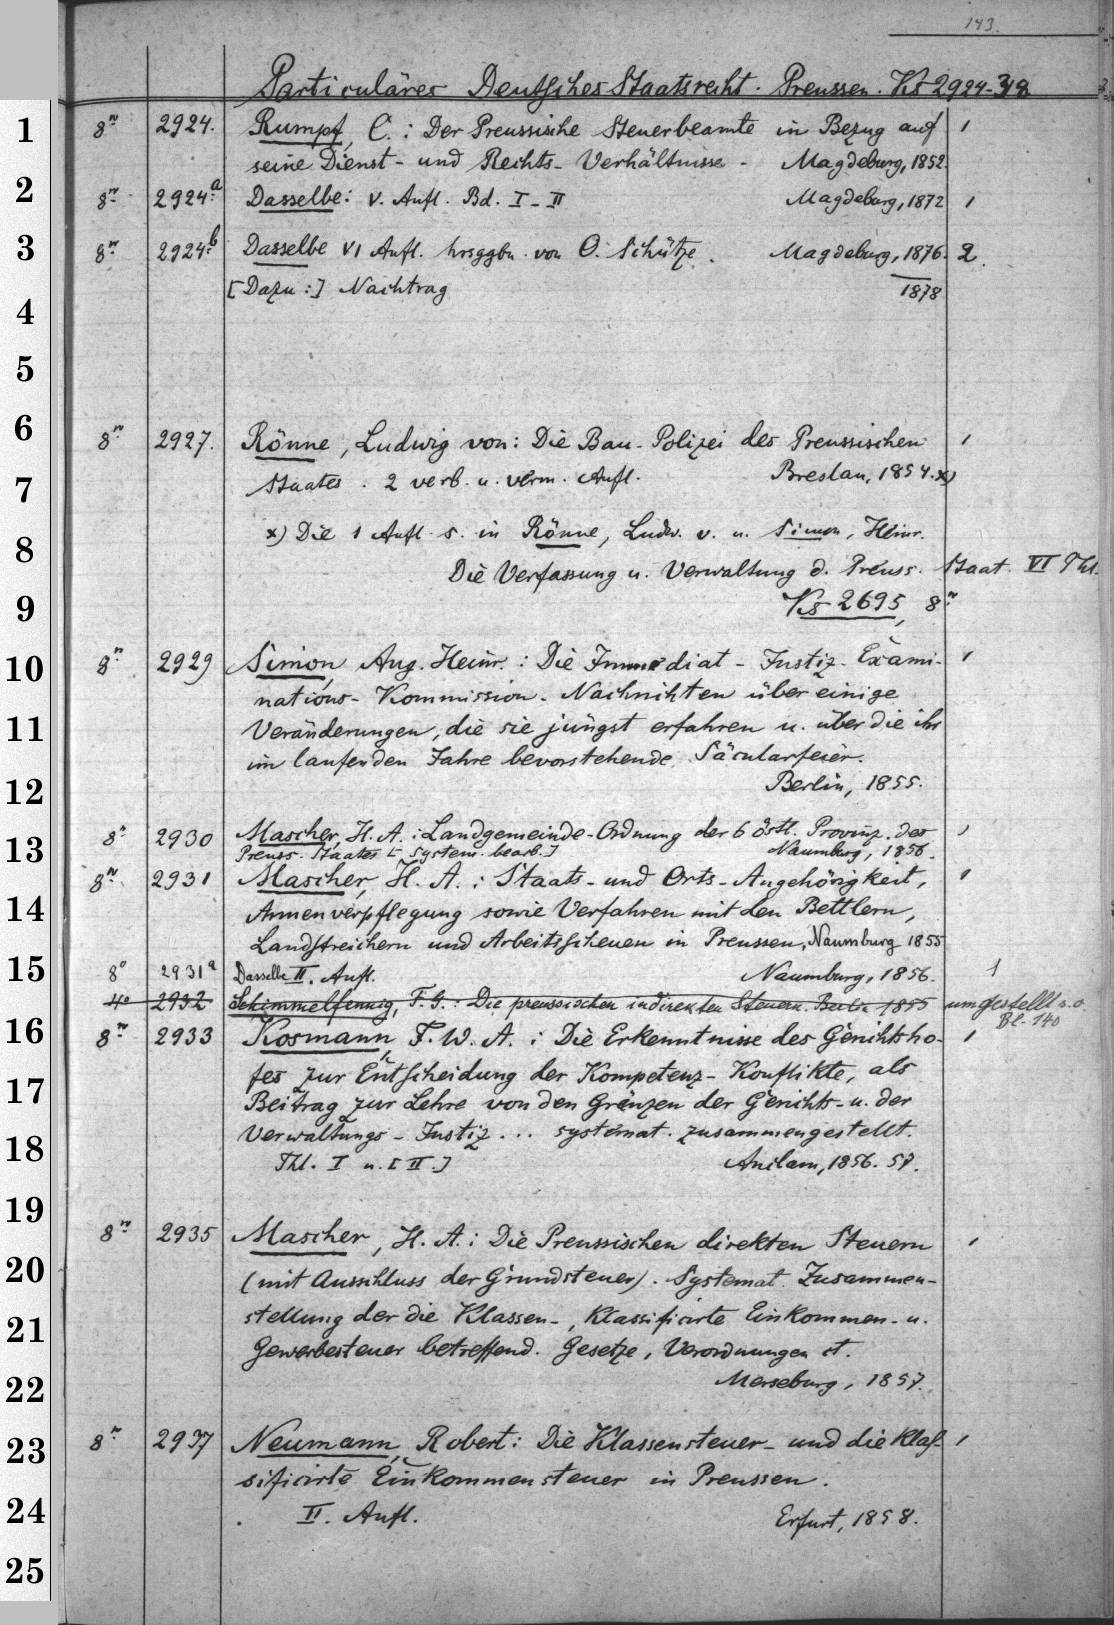 143.
Particuläres Deutsches Staatsrecht. Preussen. Ks 2924-348
1 8º 2924. Rumpf, C.: Der Preussische Steuerbeamte in Bezug auf 1
seine Dienst- und Rechts-Verhältnisse - Magdeburg, 1852.
2 8º 2924.a Dasselbe: V. Aufl. Bd. I-II Magdeburg, 1872 1
3 8º 2924.b Dasselbe VI Aufl. hrsggbn. von O. Schütze. Magdeburg, 1876. 2.
4 [Dazu:] Nachtrag 1878
5
6 8º 2927. Rönne, Ludwig von: Die Bau-Polizei des Preussischen 1
7 Staates. 2 verb. u. verm. Aufl. Breslau, 1854. x)
8 x) Die 1 Aufl. s. in Rönne, Ludw. v. u. Simon, Heinr.
Die Verfassung u. Verwaltung d. Preuss. Staat. VI Thl.
9 Ks 2695, 8º
10 8º 2929 Simon, Aug. Heinr.: Die Immediat-Justiz-Exami- 1
nations-Kommission. Nachrichten über einige
11 Veränderungen, die sie jüngst erfahren u. über die ihr
im laufenden Jahre bevorstehende Säcularfeier.
12 Berlin, 1855.
13 8º 2930 Mascher, H. A.: Landgemeinde-Ordnung der 6 östl. Provinz. des 1
Preuss. Staates [system. bearb.] Naumburg, 1856.
8º 2931 Mascher, H. A.: Staats- und Orts-Angehörigkeit, 1
14 Armenverpflegung sowie Verfahren mit den Bettlern,
Landstreichern und Arbeitsscheuen in Preussen, Naumburg 1855
15 8º 2931a Dasselbe II. Aufl. Naumburg, 1856. 1
4º 2932 Schimmelfennig, F. G.: Die preussischen indirekten Steuern. Berlin 1855 umgestellt s. o
Bl. 140
16 8º 2933 Kosmann, F. W. A.: Die Erkenntnisse des Gerichtsho- 1
fes zur Entscheidung der Kompetenz-Konflikte, als
17 Beitrag zur Lehre von den Grenzen der Gerichts- u. der
Verwaltungs-Justiz... systemat. zusammengestellt.
18 Thl. I u. [II.] Anclam, 1856. 57.
19 8º 2935 Mascher, H. A.: Die Preussischen direkten Steuern 1
20 (mit Ausschluss der Grundsteuer). Systemat. Zusammen-
21 stellung der die Klassen-, Klassificirte Einkommen- u.
Gewerbesteuer betreffend. Gesetze, Verordnungen ct.
22 Merseburg, 1857.
23 8º 2937 Neumann, Robert: Die Klassensteuer- und die klas- 1
sificirte Einkommensteuer in Preussen.
24 II. Aufl. Erfurt, 1858.
25